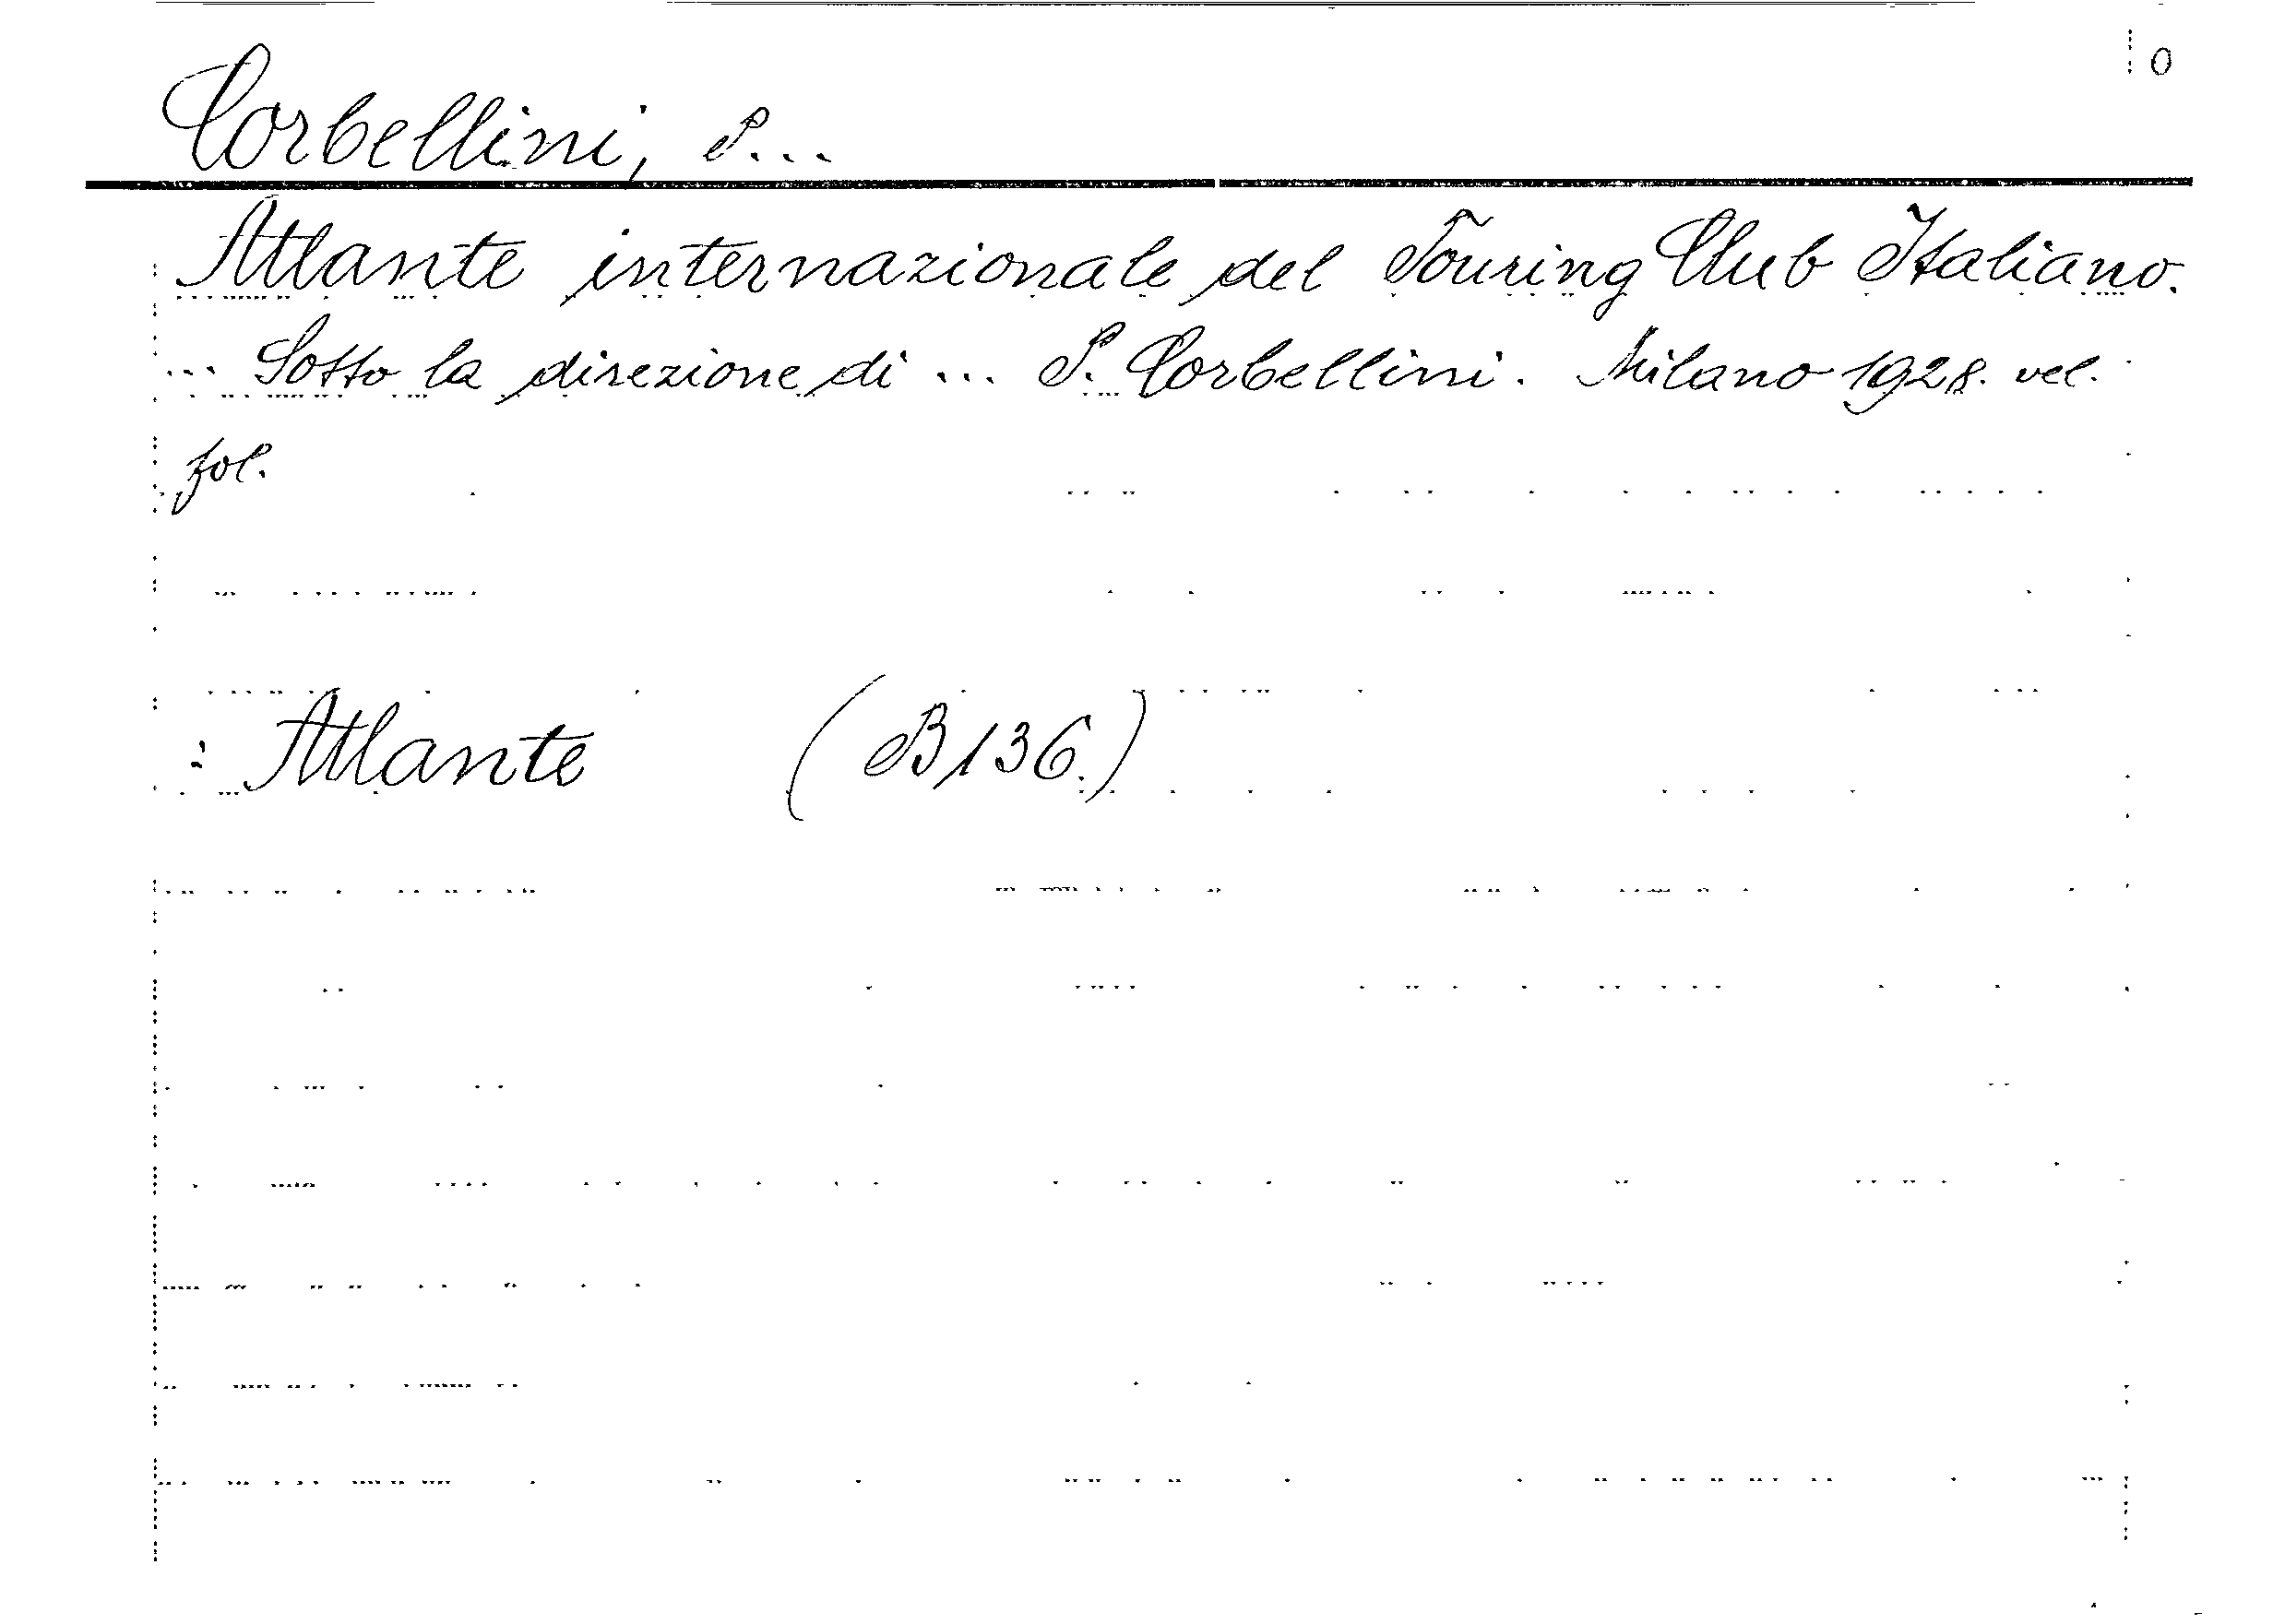 0
Corbellini, P...
Atlante internazionale del Touring Club Italiano.
... Sotto la direzione di ... P. Corbellini. Milano 1928. vel.
fol.
: Atlante (B136.)